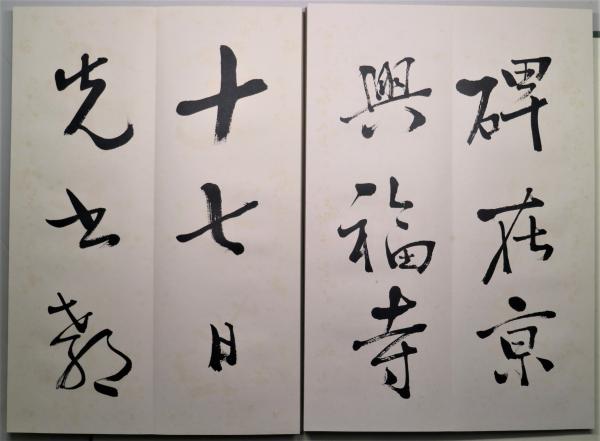 碑在京
興福寺
十七日
先書郗